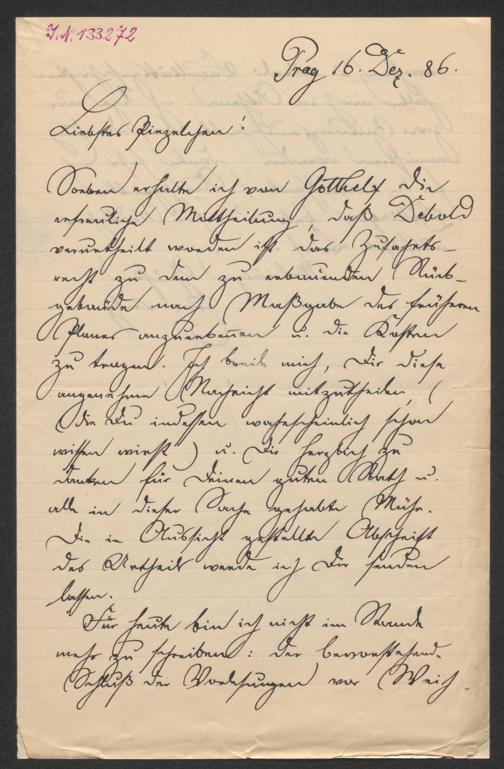 I.N. 133272
Prag 16. Dez. 86.
Liebstes Pinzelchen!
Soeben erhalte ich von Gotthelf die
erfreuliche Mittheilung, daß Debold
verurtheilt worden ist das Zufahrts-
recht zu dem zu erbauenden Rück-
gebäude nach Maßgabe des früheren
Planes anzuerkennen u. die Kosten
zu tragen. Ich beeile mich, Dir diese
angenehme Nachricht mitzutheilen, (
die Du indessen wahrscheinlich schon
wissen wirst) u. Dir herzlich zu
danken für Deinen guten Rath u.
alle in dieser Sache gehabte Mühe.
Die in Aussicht gestellte Abschrift
des Urtheils werde ich Dir senden
lassen.
Für heute bin ich nicht im Stande
mehr zu schreiben: der bevorstehende
Schluß der Vorlesungen vor Weih-